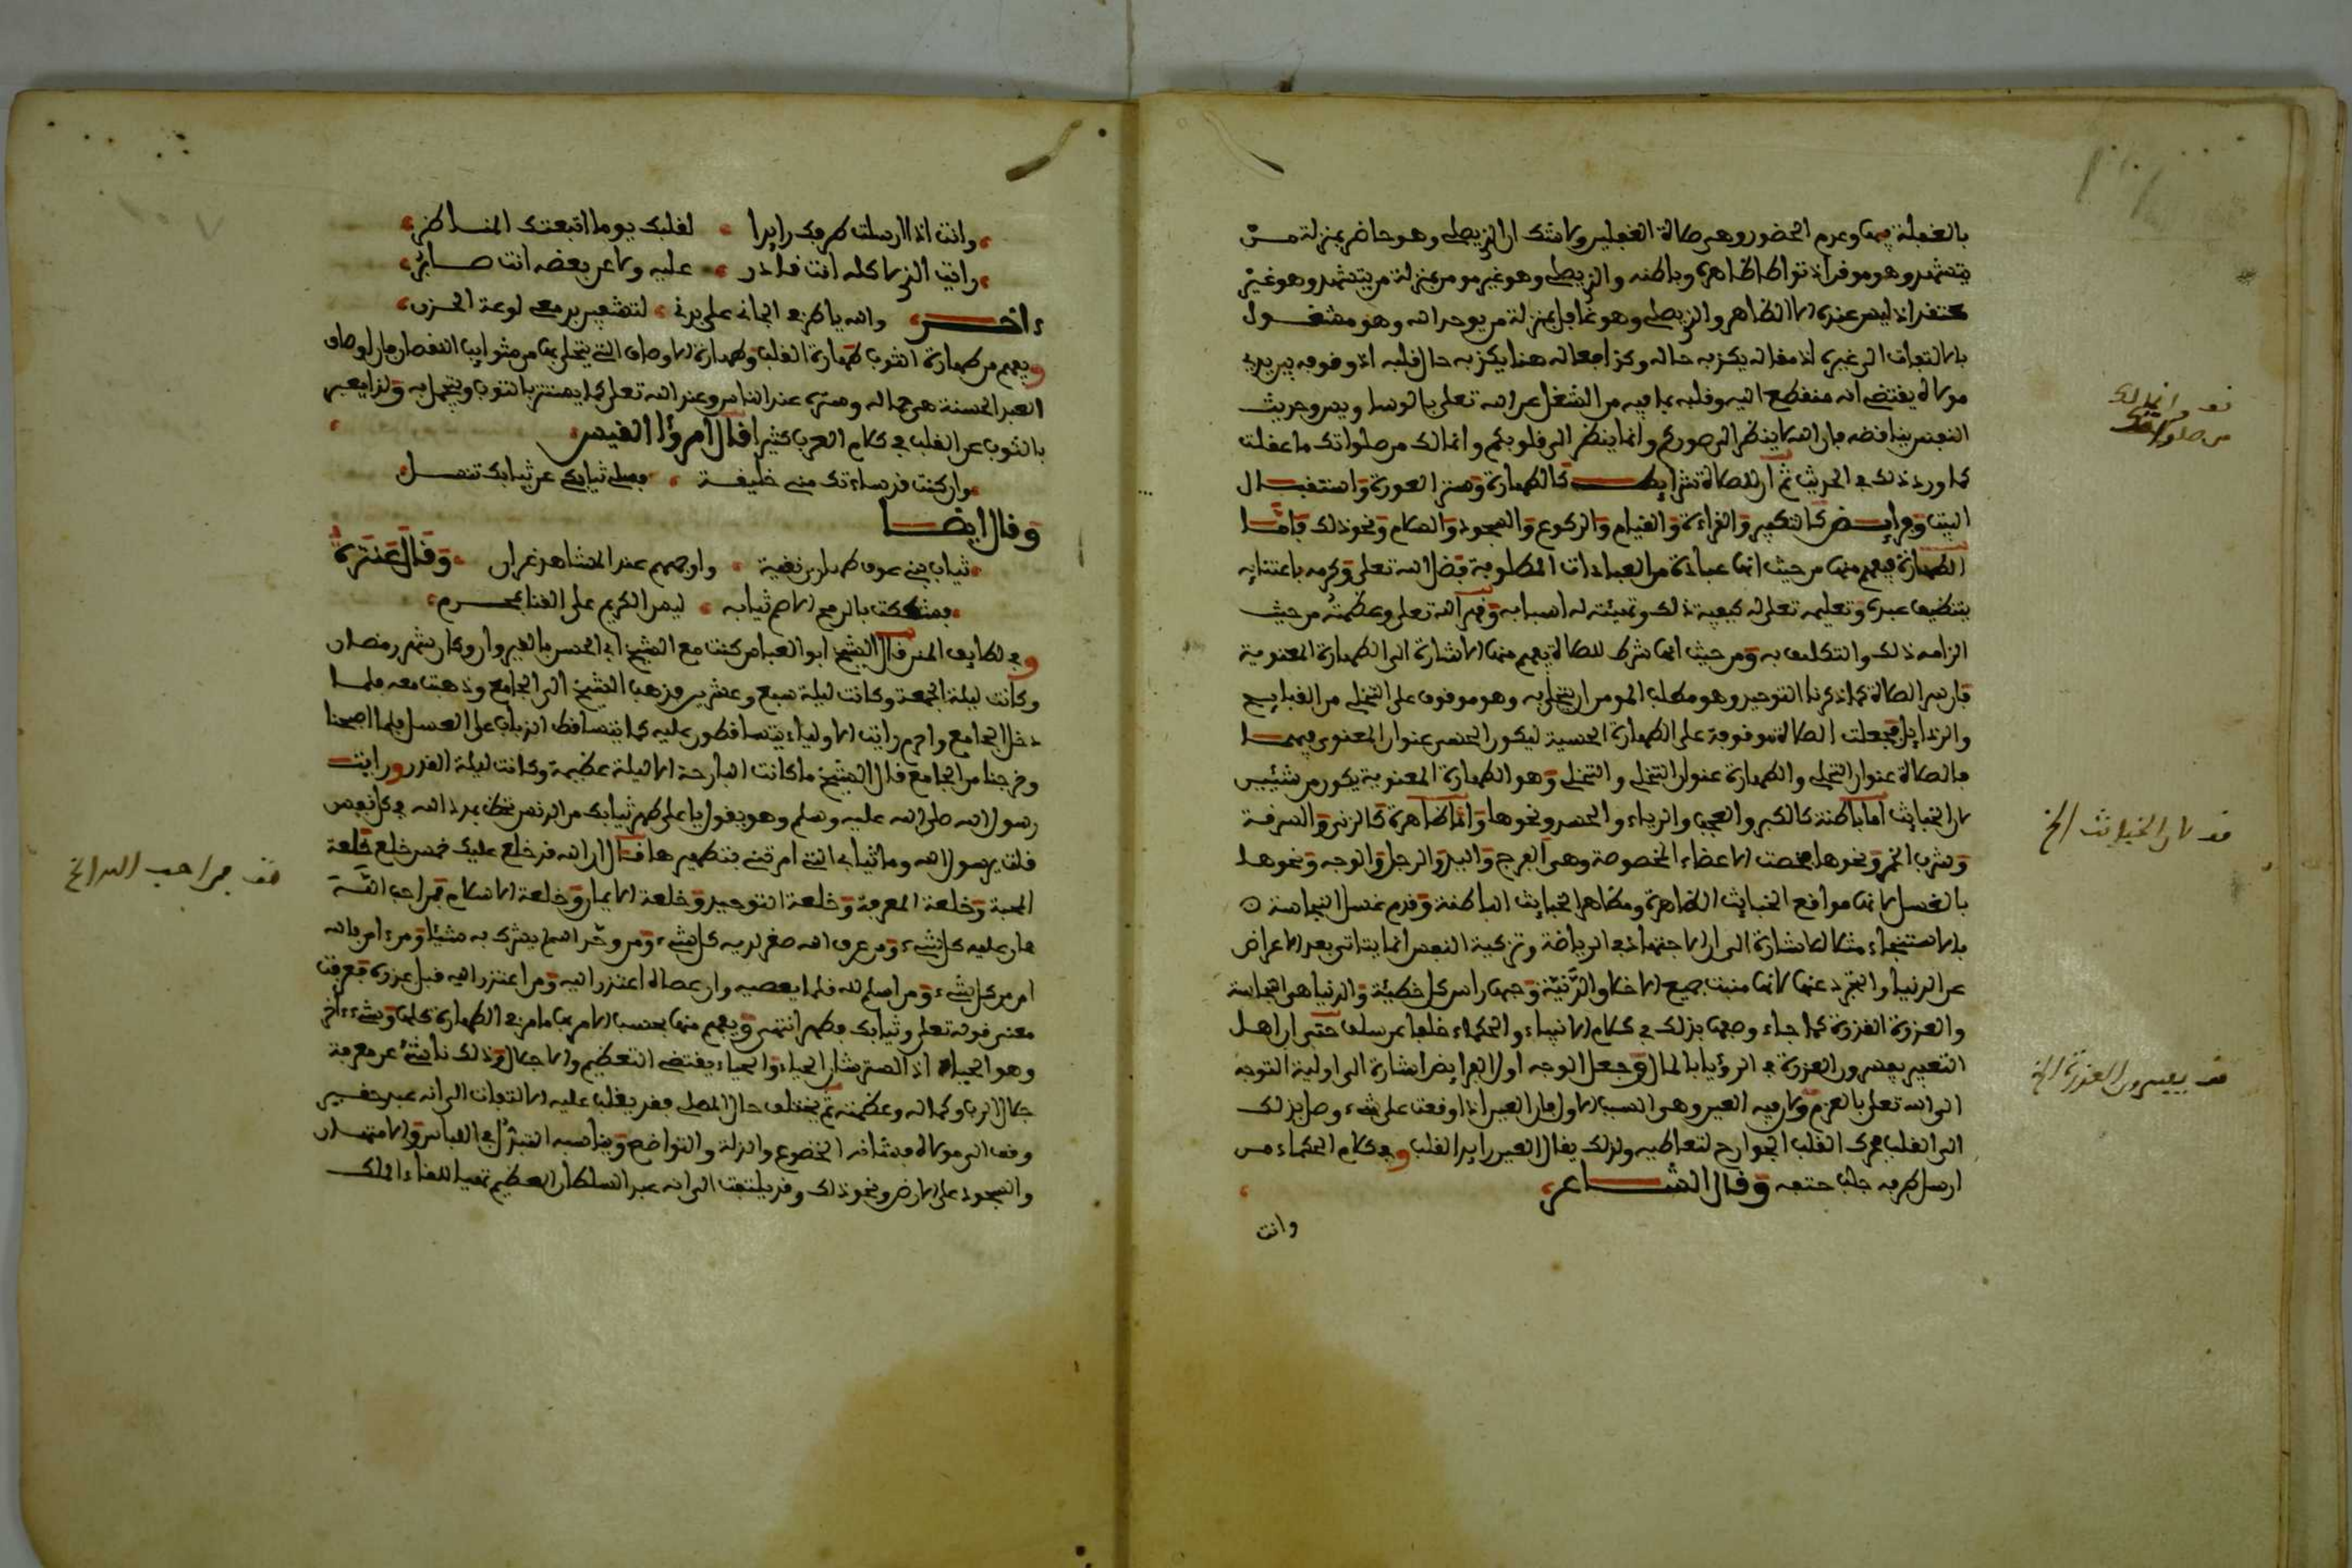 بالغفلة فيها وعدم الحضور وهي صلاة الغافلين ولا شك ان الذي يصلي وهو حاضر بمنزلة من
يتشهد وهو موقن اذ تواطا ظاهره وباطنه والذي يصلي وهو غير مومن بمنزلة من يتشهد وهو غير
معتقد اذ ليس عنده الا الظاهر والذي يصلي وهو غافل بمنزلة من يوحد الله وهو مشغول
بالالتفات الى غيره اذ مقاله يكذبه حاله وكذا افعاله هنا يكذبه حال قلبه اذ وقوفه بين يدي
مولاه يقتضي انه منقطع اليه وقلبه بما فيه من الشغل عن الله تعلى بالوساويس وحديث
النفس يناقضه فان الله لا ينظر الى صوركم وانما ينظر الى قلوبكم وانما لك من صلواتك ما عقلت
كما ورد ذلك في الحديث ثم ان للصلاة شرايط كالطهارة وستر العورة واستقبال
البيت وفرايض كالتكبير والقراءة والقيام والركوع والسجود والسلام ونحو ذلك فاما
الطهارة فيفهم منها من حيث انها عبادة من العبادات المطلوبة فضل الله تعلى وكرمه باعتنايه
بتنظيف عبده وتعليمه تعلى له كيفية ذلك وتهيئته له اسبابه وقهر الله تعلى وعظمته من حيث
الزامه ذلك والتكليف به ومن حيث انها شرط للصلاة يفهم منها الاشارة الى الطهارة المعنوية
فان سر الصلاة كما ذكرنا التوحيد وهو مطلب المومن ان يتحلى به وهو موقوف على التخلي من القبايح
والرذايل فجعلت الصلاة موقوفة على الطهارة الحسية ليكون الحسي عنوان المعنوي فيهما
فالصلاة عنوان التحلي والطهارة عنوان التخلي والتخلي وهو الطهارة المعنوية يكون من شيئين
لان الخبايث اما باطنة كالكبر والعجب والرياء والحسد ونحوها واما ظاهرة كالزنى والسرقة
وشرب الخمر ونحوها فخصت الاعضاء المخصوصة وهي الفرج واليد والرجل والوجه ونحوها
بالغسل لانها مواقع الخبايث الظاهرة ومظاهر الخبايث الباطنة وقدم غسل النجاسة
بالاستنجاء مثلا للاشارة الى ان الاجتهاد في الرياضة وتزكية النفس انما يتاتى بعد الاعراض
عن الدنيا والتجرد عنها لانها منبت جميع الاخلاق الدنية وحبها راس كل خطيئة والدنيا هي النجاسة
والعذرة القذرة كما جاء وصفها بذلك في كلام الانبياء والحكماء خلفا عن سلف حتى ان اهل
التعبير يفسرون العذرة في الرؤيا بالمال وجعل الوجه اول الفرايض اشارة الى اولية التوجه
الى الله تعلى بالعزم ولان فيه العين وهي السبب الاول فان العين اذا وقعت على شيء وصل بذلك
الى القلب فحرك القلب الجوارح لتعاطيه ولذلك يقال العين رايد القلب وفي كلام الحكماء من
ارسل طرفه جلب حتفه وقال الشاعر
وانت
قف وانما لك
من صلواتك
قف لان الخبايث الخ
قف يفسرون العذرة الخ
وانت اذا ارسلت طرفك رايدا لقلبك يوما اتبعتك المناظر
رايت الذي لا كله انت قادر عليه ولا عن بعضه انت صابر
ءاخر والله يا طرفي الجاني على بدني لتطفين بدمعي لوعة الحزن
ويفهم من طهارة الثوب طهارة القلب وطهارة الاوصاف التي يتحلى بها من شوايب النقصان فان اوصاف
العبد الحسنة هي جماله وستره عند الناس وعند الله تعلى كما يستتر بالثوب ويتجمل به ولذا يعبر
بالثوب عن القلب في كلام العرب كثيرا قال امرؤ القيس
وان كنت قد ساءتك مني خليقة فسلي ثيابي عن ثيابك تنسل
وقال ايضا
ثياب بني عوف طهارى نقية واوجههم عند المشاهد غران وقال عنترة
فشككت بالرمح الاصم ثيابه ليس الكريم على القنا بمحرم
وفي لطايف المنن قال الشيخ ابو العباس كنت مع الشيخ ابي الحسن بالقيروان وكان شهر رمضان
وكانت ليلة الجمعة وكانت ليلة سبع وعشرين فذهب الشيخ الى الجامع وذهبت معه فلما
دخل الجامع واحرم رايت الاولياء يتساقطون عليه كما يتساقط الذباب على العسل فلما اصبحنا
وخرجنا من الجامع قال الشيخ ما كانت البارحة الا ليلة عظيمة وكانت ليلة القدر ورايت
رسول الله صلى الله عليه وسلم وهو يقول يا علي طهر ثيابك من الدنس تحظ بمدد الله في كل نفس
قلت يا رسول الله وما ثيابي التي امرتني بتطهيرها فقال ان الله قد خلع عليك خمس خلع خلعة
المحبة وخلعة المعرفة وخلعة التوحيد وخلعة الايمان وخلعة الاسلام فمن احب الله
هان عليه كل شيء ومن عرف الله صغر لديه كل شيء ومن وحد الله لم يشرك به شيئا ومن ءامن بالله
امن من كل شيء ومن اسلم لله قلما يعصيه وان عصاه اعتذر اليه ومن اعتذر اليه قبل عذره فعرفت
معنى قوله تعلى وثيابك فطهر انتهى ويفهم منها بحسب الامر بها ما مر في الطهارة كلها وشيء ءاخر
وهو الحياء اذ الستر شان الحياء والحياء يقتضي التعظيم والاجلال وذلك ناشئ عن معرفة
جلال الرب وكماله وعظمته ثم يختلف حال المصلي فقد يغلب عليه الالتفات الى انه عبد حقير
وقف الى مولاه فشانه الخضوع والذلة والتواضع ويناسبه التبذل في اللباس والامتهان
والسجود على الارض ونحو ذلك وقد يلتفت الى انه عبد السلطان العظيم تهيا للقاء الملك
قف فمن احب الله الخ